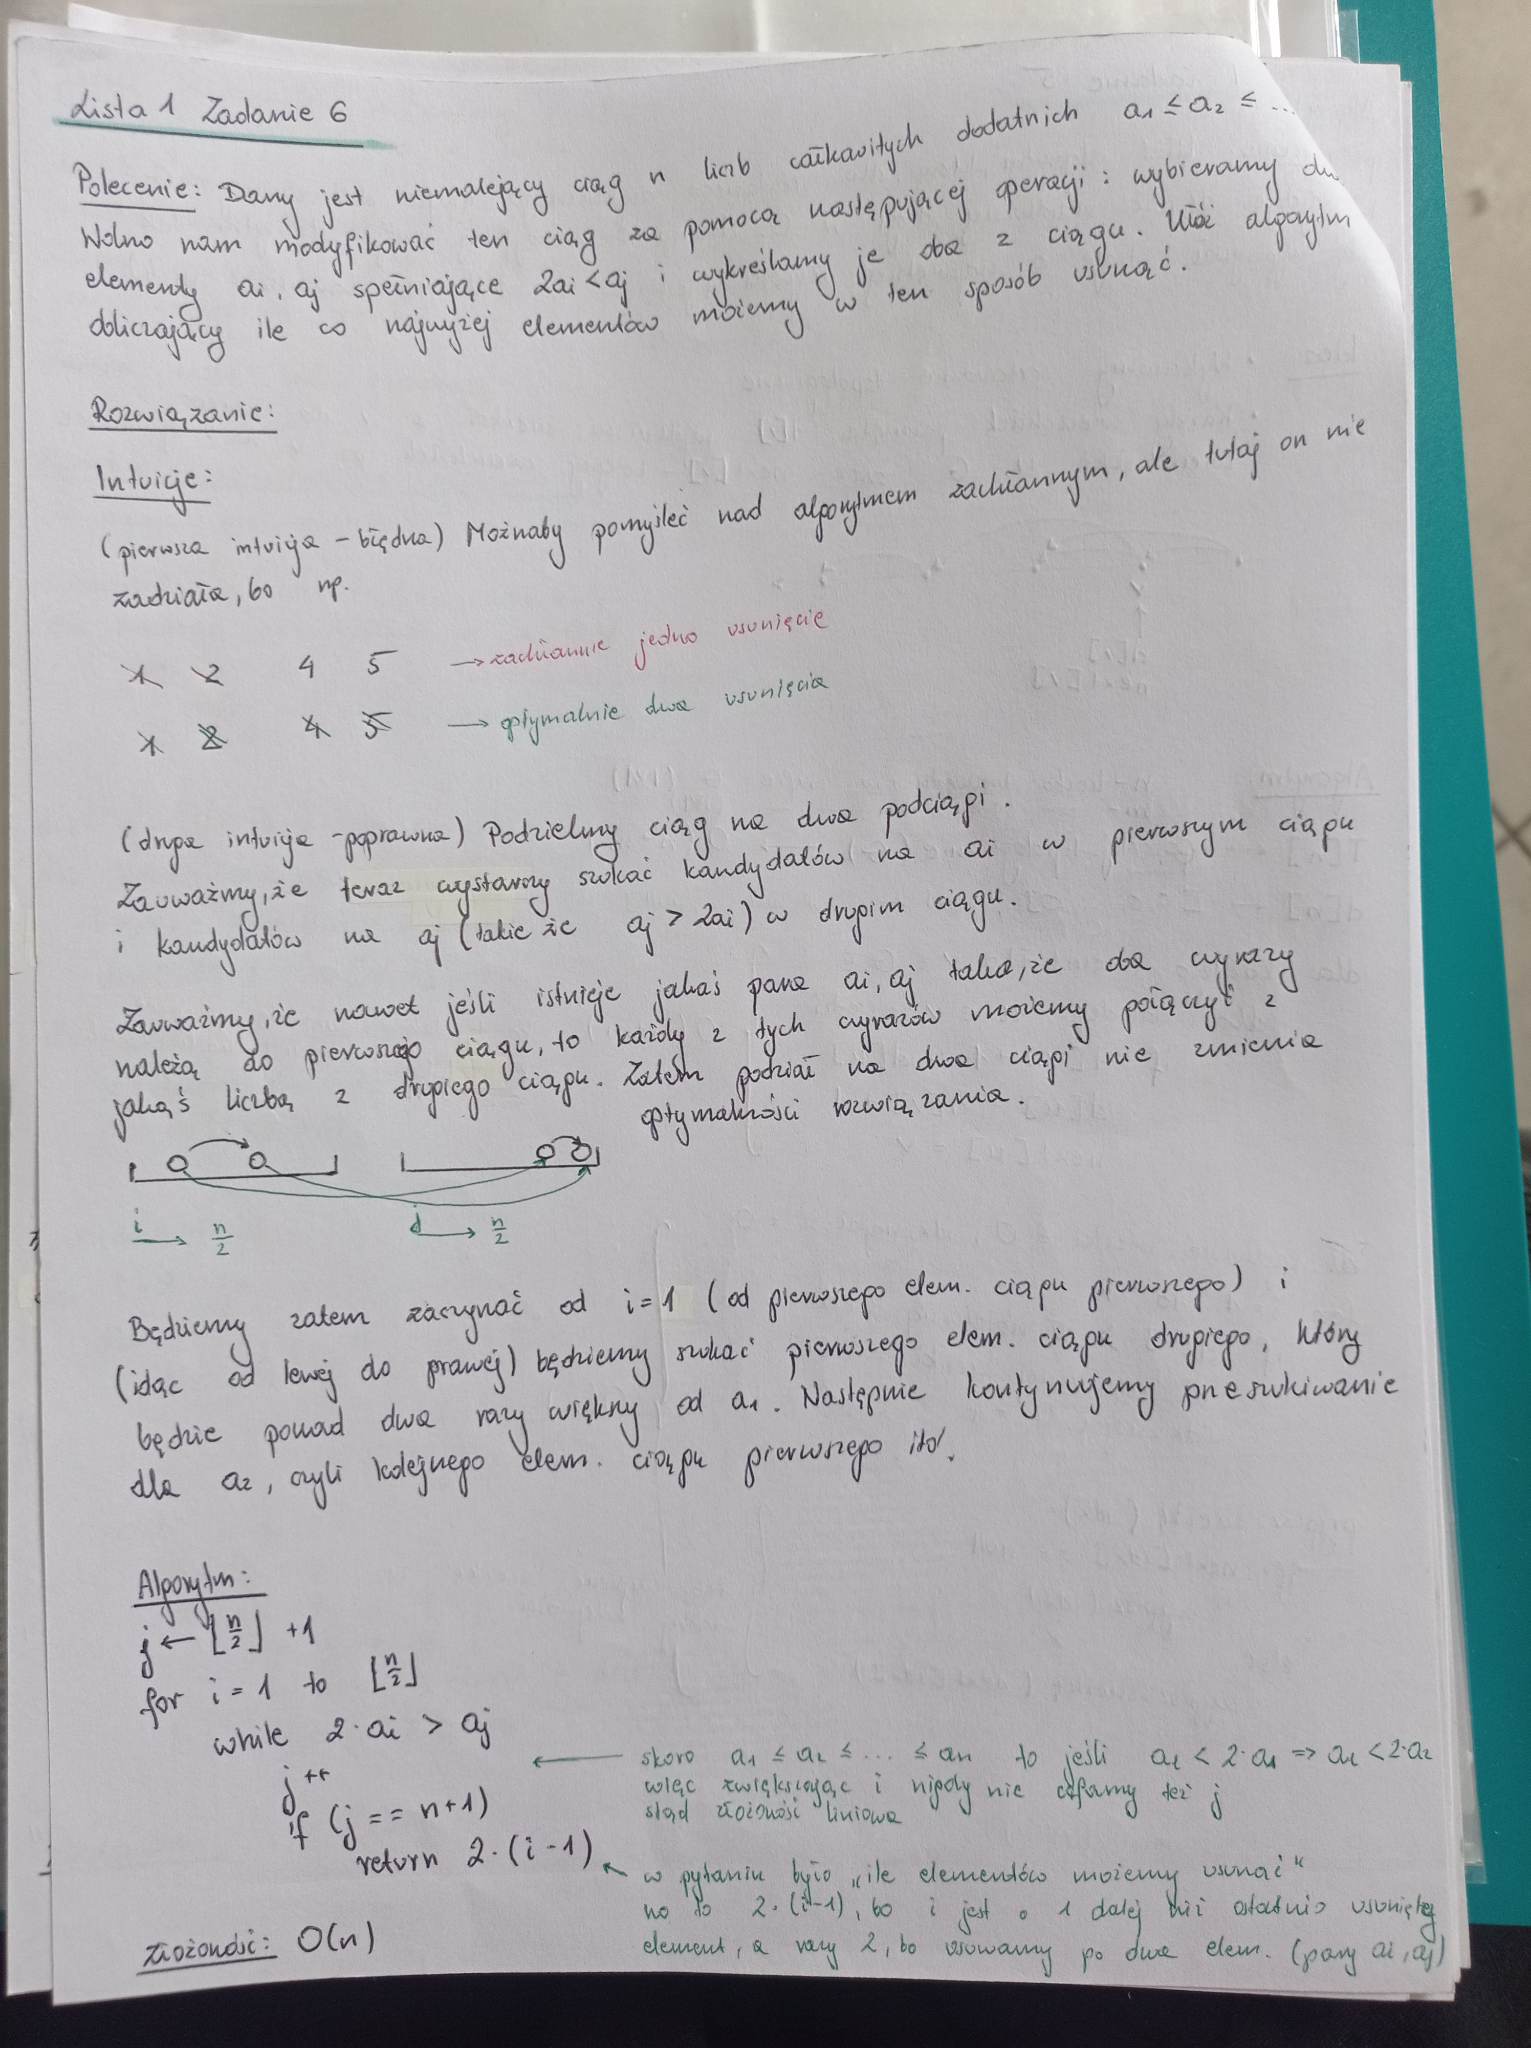 Lista 1 Zadanie 6
Polecenie: Dany jest niemalejący ciąg n liczb całkowitych dodatnich a1 ≤ a2 ≤ ...
Wolno nam modyfikować ten ciąg za pomocą następującej operacji: wybieramy dw
elementy ai, aj spełniające 2ai < aj i wykreślamy je oba z ciągu. Ułóż algorytm
obliczający ile co najwyżej elementów możemy w ten sposób usunąć.
Rozwiązanie:
Intuicje:
(pierwsza intuicja - błędna) Możnaby pomyśleć nad algorytmem zachłannym, ale tutaj on nie
zadziała, bo np.
1 2 4 5 → zachłannie jedno usunięcie
1 2 4 5 → optymalnie dwa usunięcia
(druga intuicja - poprawna) Podzielmy ciąg na dwa podciągi.
Zauważmy, że teraz wystarczy szukać kandydatów na ai w pierwszym ciągu
i kandydatów na aj (takie że aj > 2ai) w drugim ciągu.
Zauważmy, że nawet jeśli istnieje jakaś para ai, aj taka, że oba wyrazy
należą do pierwszego ciągu, to każdy z tych wyrazów możemy połączyć z
jakąś liczbą z drugiego ciągu. Zatem podział na dwa ciągi nie zmienia
optymalności rozwiązania.
i → n/2 j → n/2
Będziemy zatem zaczynać od i=1 (od pierwszego elem. ciągu pierwszego) i
(idąc od lewej do prawej) będziemy szukać pierwszego elem. ciągu drugiego, który
będzie ponad dwa razy większy od a1. Następnie kontynujemy przeszukiwanie
dla a2, czyli kolejnego elem. ciągu pierwszego itd.
Algorytm:
j ← ⌊n/2⌋ + 1
for i = 1 to ⌊n/2⌋
while 2·ai > aj
j++
if (j == n+1)
return 2·(i-1)
← skoro a1 ≤ a2 ≤ ... ≤ an to jeśli al < 2·a1 => al < 2·a2
więc zwiększając i nigdy nie cofamy też j
stąd złożoność liniowa
w pytaniu było „ile elementów możemy usunąć"
no to 2·(i-1), bo i jest o 1 dalej niż ostatnio usunięty
element, a razy 2, bo usuwamy po dwa elem. (pary ai, aj)
Złożoność: O(n)